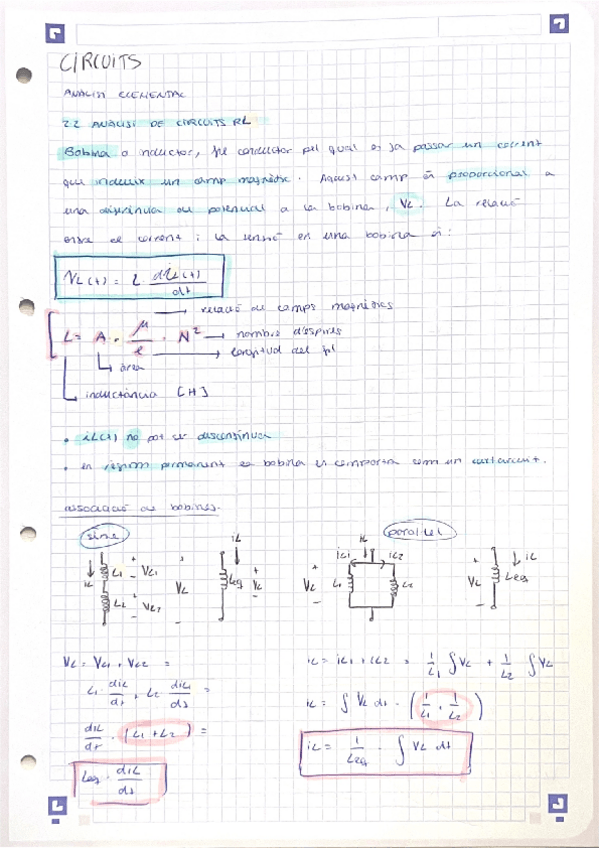 CIRCUITS
ANÀLISI ELEMENTAL
2.2 ANÀLISI DE CIRCUITS RL
Bobina o inductor, fil conductor pel qual es fa passar un corrent
que indueix un camp magnètic. Aquest camp és proporcional a
una diferència de potencial a la bobina, VL. La relació
entre el corrent i la tensió en una bobina és:
VL(t) = L diL(t)/dt
→ relació de camps magnètics
L = A · μ/l · N² → nombre d'espires
→ longitud del fil
↳ àrea
↳ inductància [H]
• iL(t) no pot ser discontínua
• en règim permanent la bobina es comporta com un curtcircuit.
associació de bobines.
sèrie
paral·lel
iL L1 + VL1 - L2 + VL2 - + VL - iL Leq + VL -
+ VL - iL iL1 iL2 L1 L2 + VL - iL Leq
VL = VL1 + VL2 =
L1 · diL/dt + L2 · diL/dt =
diL/dt · (L1 + L2) =
Leq · diL/dt
iL = iL1 + iL2 = 1/L1 ∫VL + 1/L2 ∫VL
iL = ∫ VL dt · (1/L1 + 1/L2)
iL = 1/Leq · ∫ VL dt